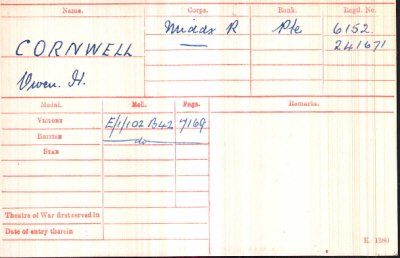 Name. Corps. Rank. Regtl. No.
CORNWELL Middx R Pte 6152.
Owen. H. 241671
Medal. Roll. Page. Remarks.
Victory E/1/102 B42 7169
British do
Star
Theatre of War first served in
Date of entry therein
K 1380